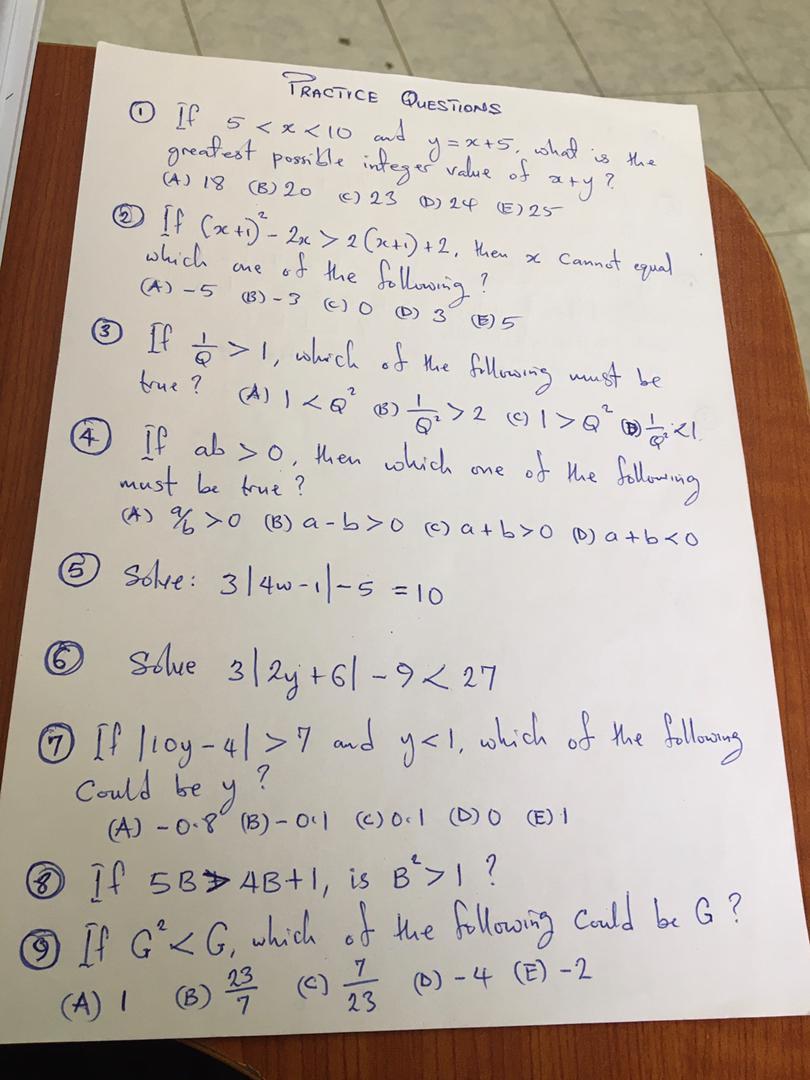 PRACTICE QUESTIONS
① If 5 < x < 10 and y = x+5, what is the
greatest possible integer value of x+y?
(A) 18 (B) 20 (C) 23 (D) 24 (E) 25
② If (x+1)² - 2x > 2(x+1)+2, then x cannot equal
which one of the following?
(A) -5 (B) -3 (C) 0 (D) 3 (E) 5
③ If 1/Q > 1, which of the following must be
true? (A) 1 < Q² (B) 1/Q² > 2 (C) 1 > Q² (D) 1/Q² < 1.
④ If ab > 0, then which one of the following
must be true?
(A) a/b > 0 (B) a - b > 0 (C) a + b > 0 (D) a + b < 0
⑤ Solve: 3|4w-1| - 5 = 10
⑥ Solve 3|2y+6| - 9 < 27
⑦ If |10y-4| > 7 and y < 1, which of the following
Could be y?
(A) -0.8 (B) -0.1 (C) 0.1 (D) 0 (E) 1
⑧ If 5B > 4B+1, is B² > 1?
⑨ If G² < G, which of the following Could be G?
(A) 1 (B) 23/7 (C) 7/23 (D) -4 (E) -2